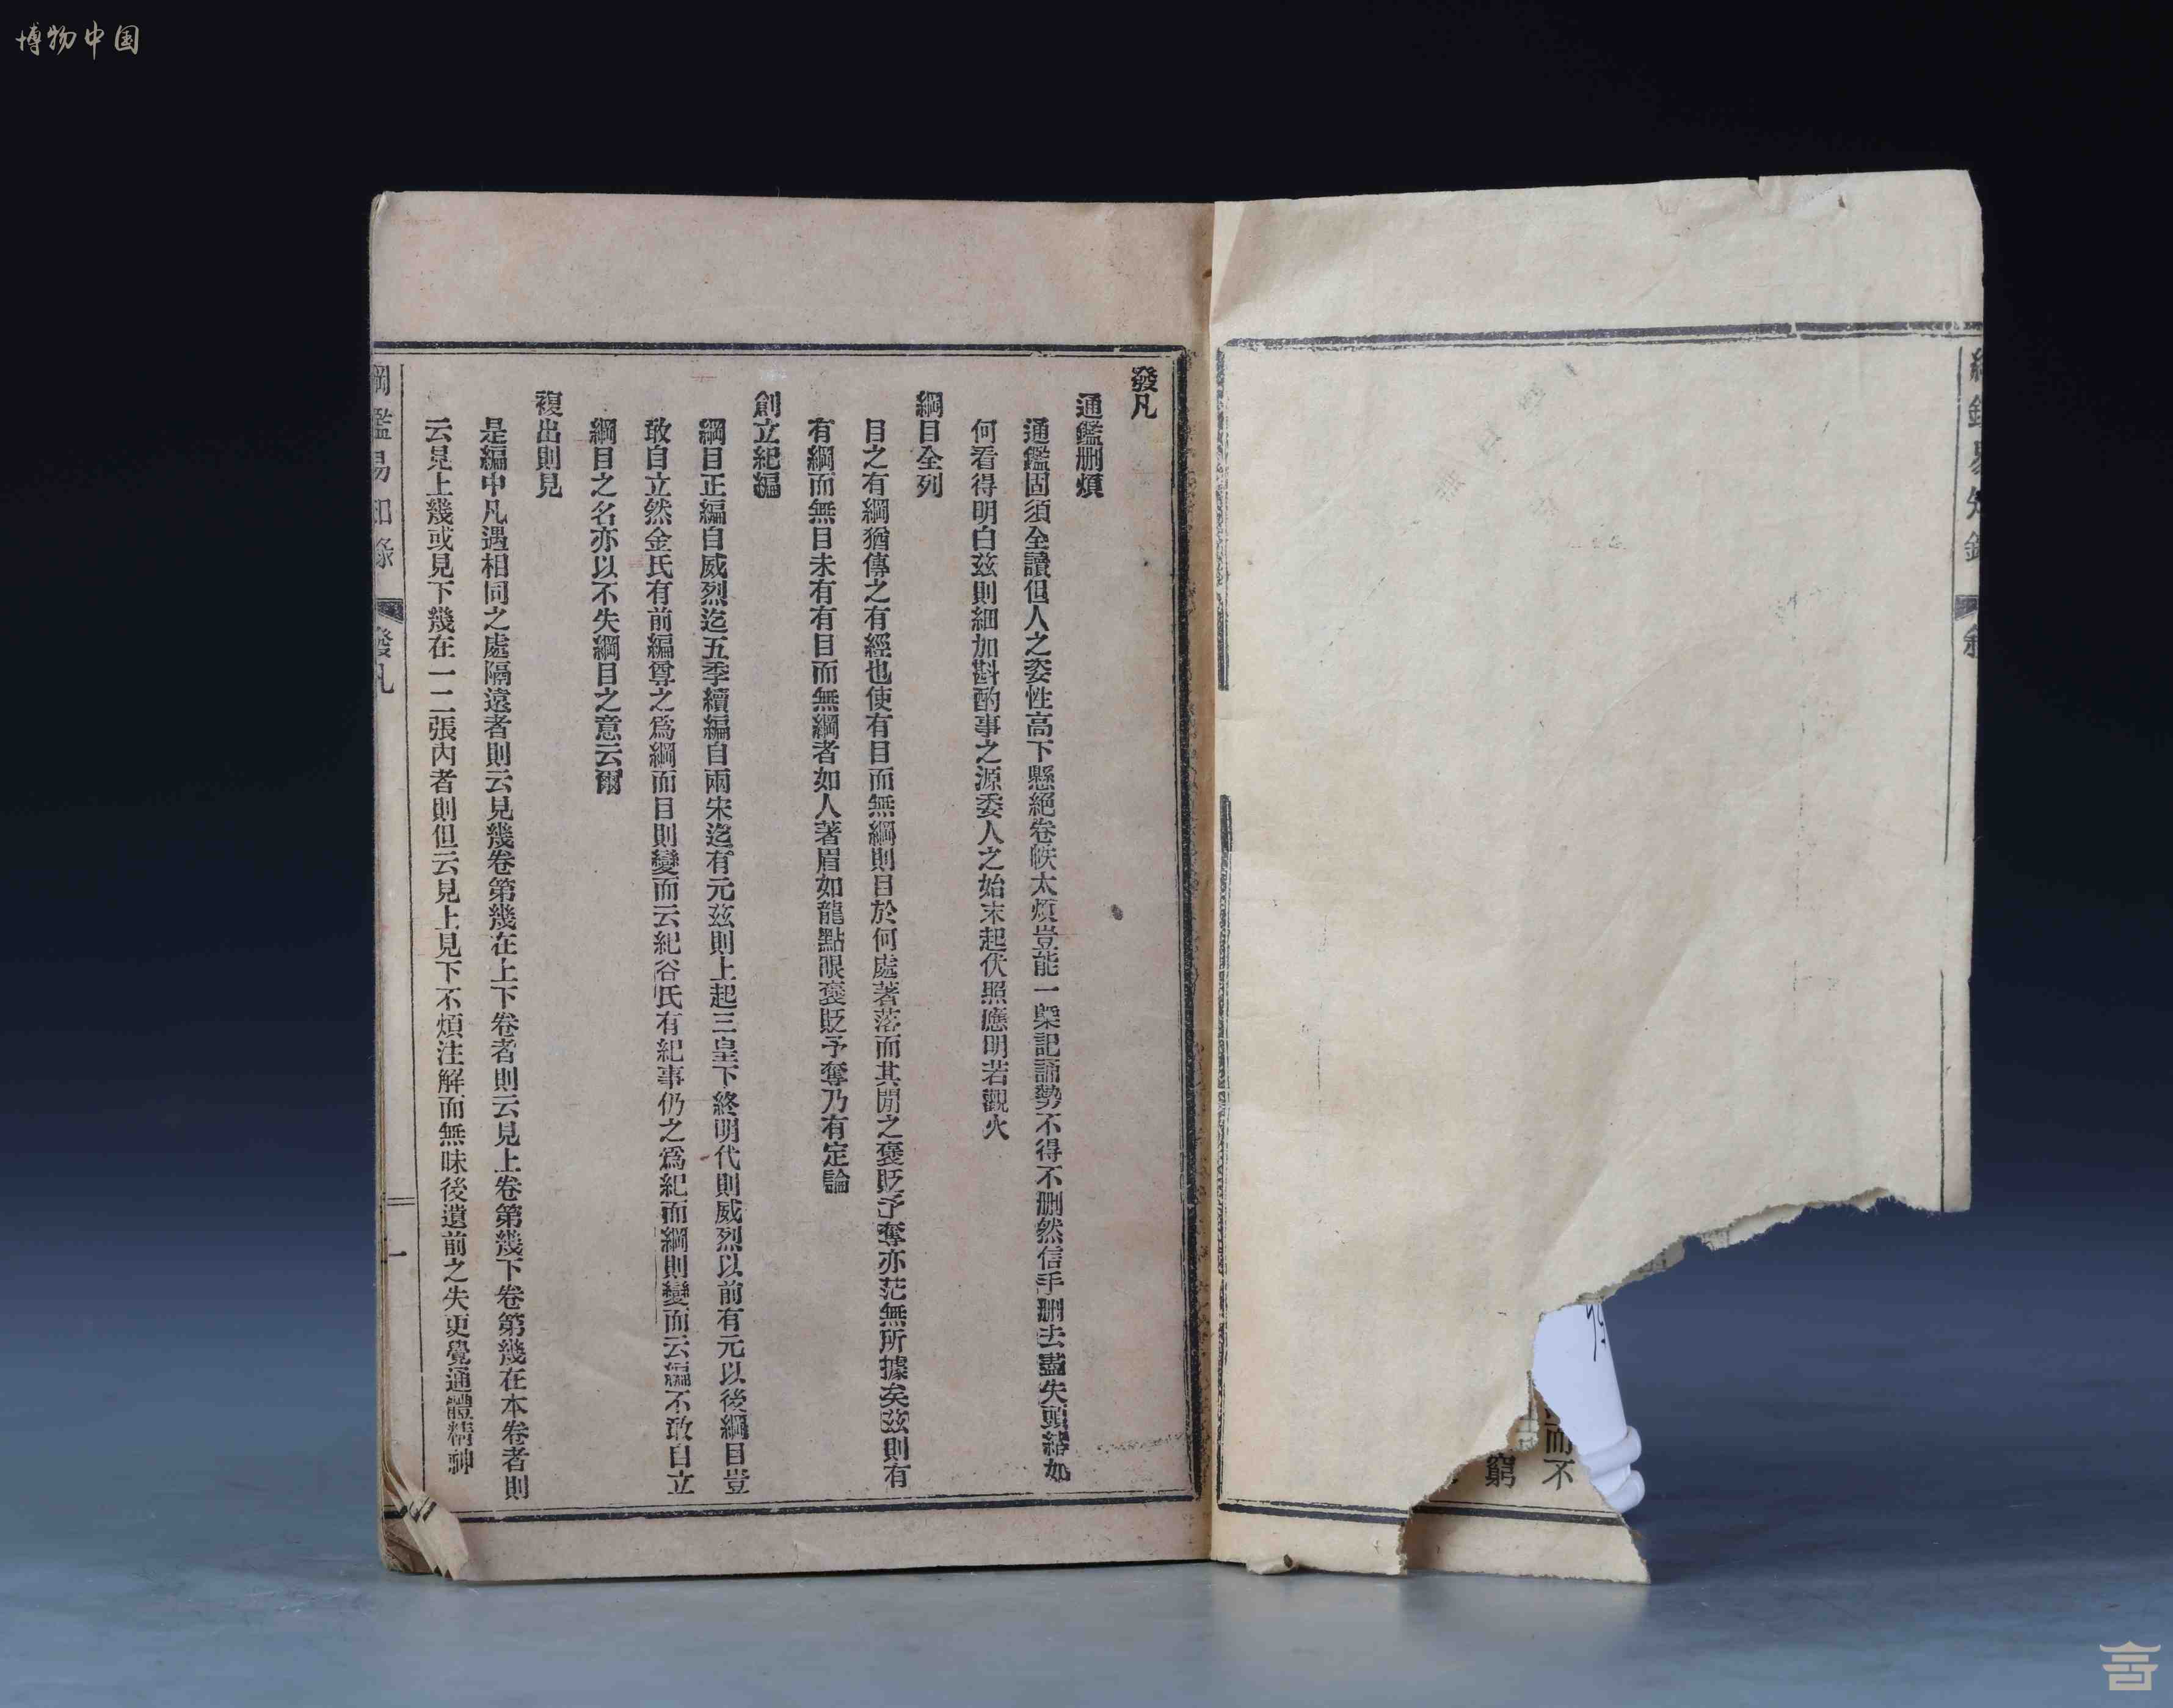 博物中国
發凡
通鑑刪煩
通鑑固須全讀但人之姿性高下懸絕卷帙太煩豈能一槩記誦勢不得不刪然信手刪去盡失頭緒如
何看得明白茲則細加斟酌事之源委人之始末起伏照應明若觀火
綱目全列
目之有綱猶傳之有經也使有目而無綱則目於何處著落而其閒之褒貶予奪亦茫無所據矣茲則有
有綱而無目未有有目而無綱者如人著眉如龍點眼褒貶予奪乃有定論
創立紀編
綱目正編自威烈迄五季續編自兩宋迄有元茲則上起三皇下終明代則威烈以前有元以後綱目豈
敢自立然金氏有前編尊之爲綱而目則變而云紀谷氏有紀事仍之爲紀而綱則變而云編不敢自立
綱目之名亦以不失綱目之意云爾
複出則見
是編中凡遇相同之處隔遠者則云見幾卷第幾在上下卷者則云見上卷第幾下卷第幾在本卷者則
云見上幾或見下幾在一二張內者則但云見上見下不煩注解而無昧後遺前之失更覺通體精神
綱鑑易知錄 發凡 一
而不
窮